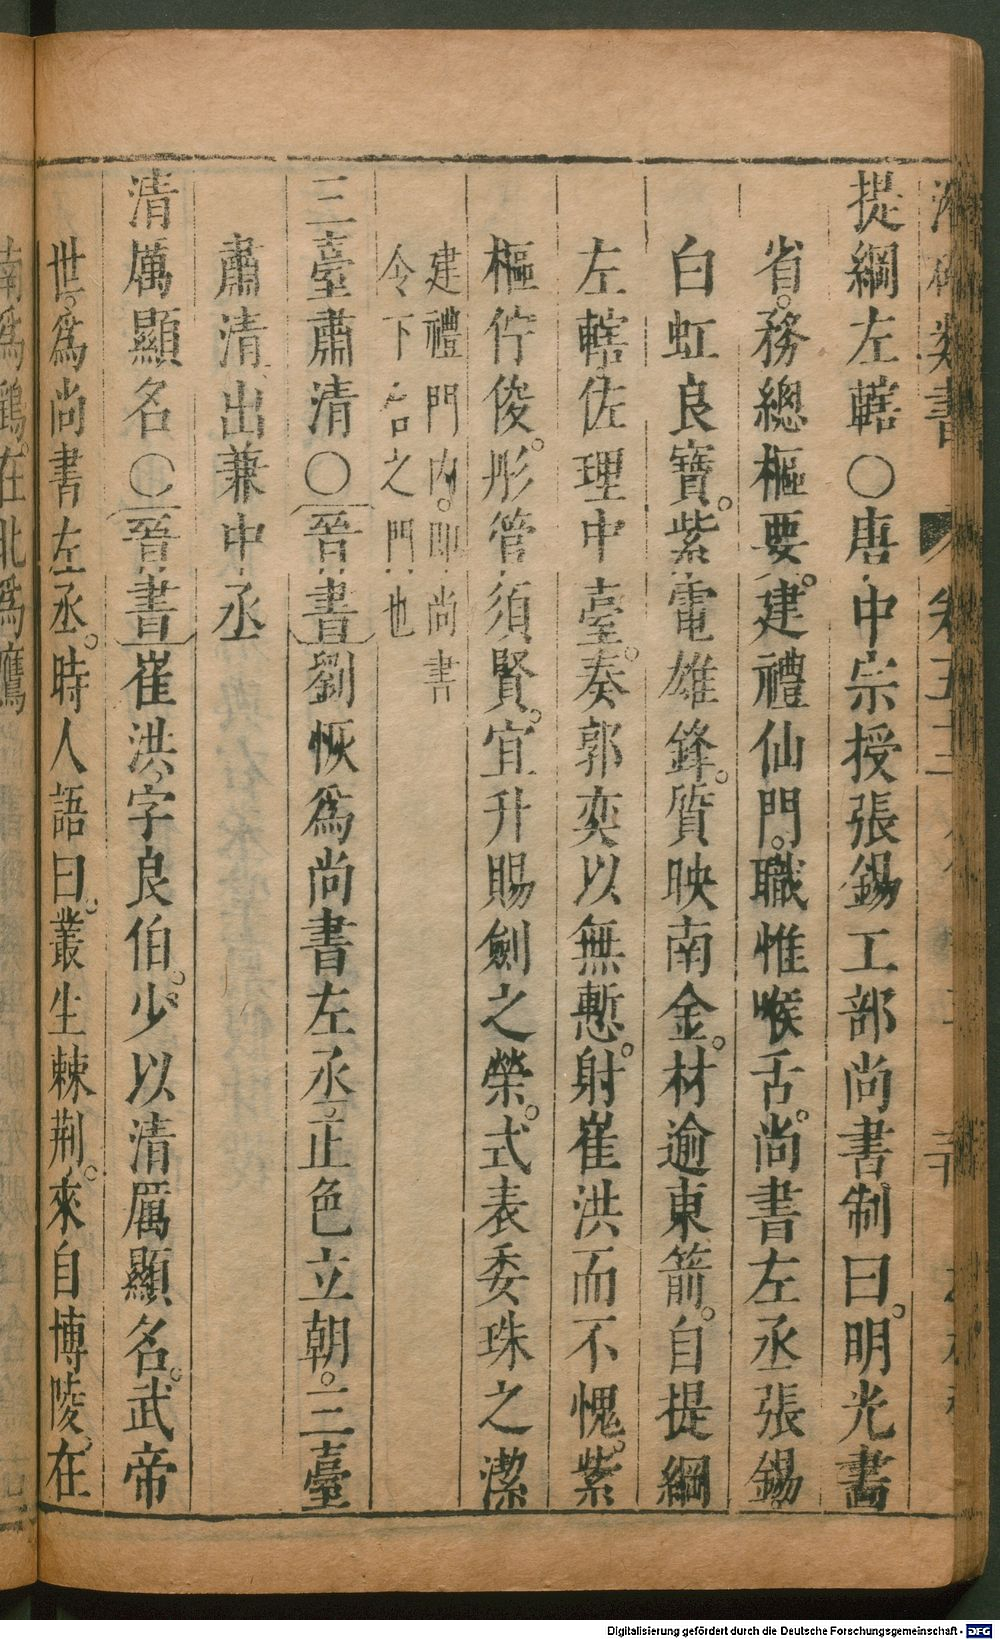 提綱左轄○唐中宗授張錫工部尚書制曰。明光畫
省。務總樞要。建禮仙門。職惟喉舌。尚書左丞張錫
白虹良寶。紫電雄鋒。質映南金。材逾東箭。自提綱
左轄。佐理中臺。奏郭奕以無慙。射崔洪而不愧。紫
樞佇俊。彤管須賢。宜升賜劍之榮。式表委珠之潔
建禮門內。即尚書
令下名之門也
三臺肅清○晉書劉恢爲尚書左丞。正色立朝。三臺
肅清出兼中丞
清厲顯名○晉書崔洪。字良伯。少以清厲顯名。武帝
世。爲尚書左丞。時人語曰。叢生棘荆。來自博陵。在
南爲鷂。在北爲鷹
Digitalisierung gefördert durch die Deutsche Forschungsgemeinschaft - DFG